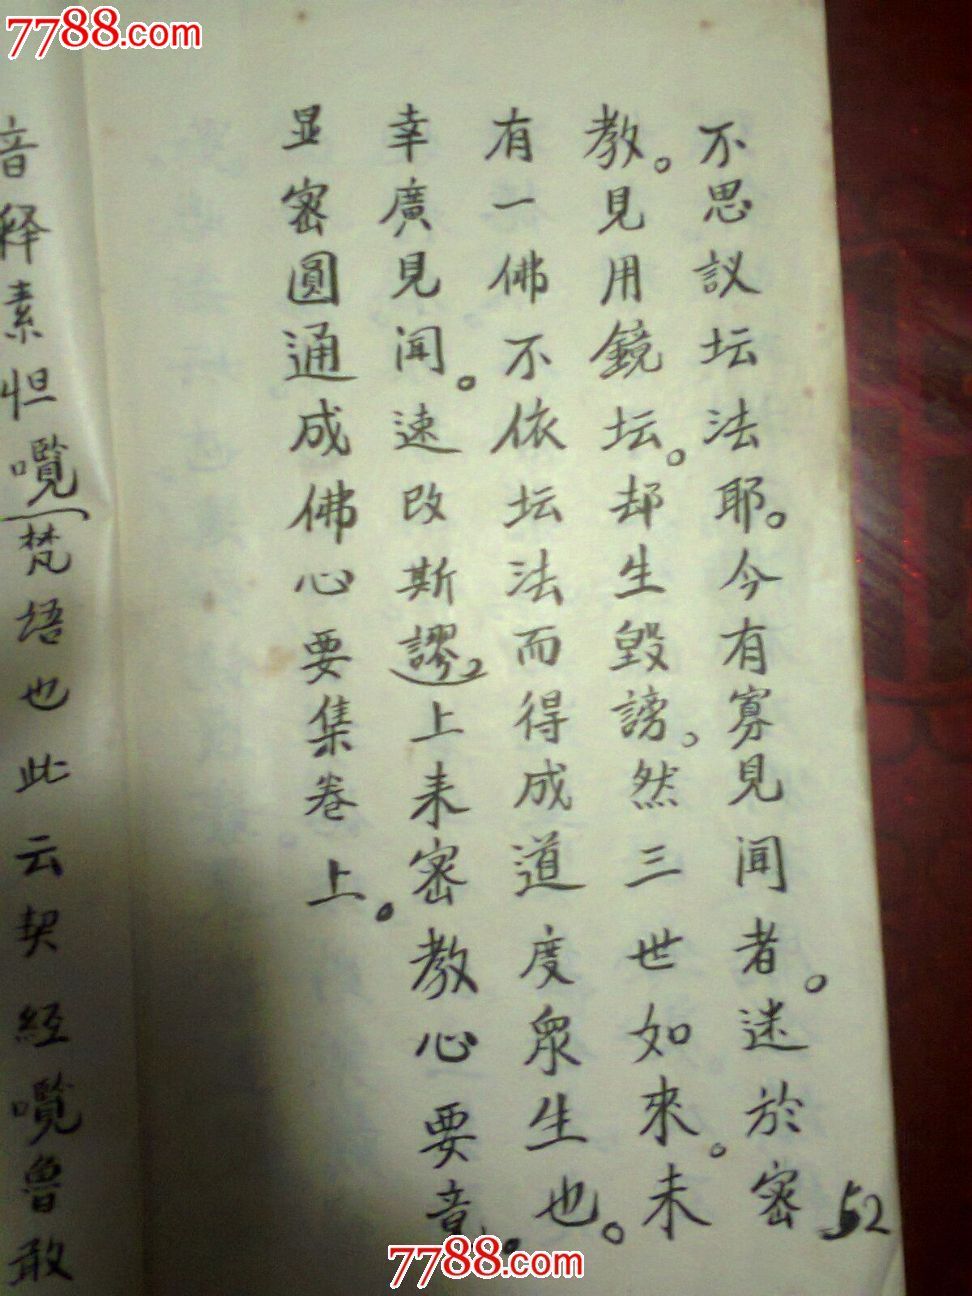 7788.com
不思议坛法耶。今有寡见闻者。迷於密
教。見用鏡坛。却生毀謗。然三世如来。未
有一佛不依坛法而得成道度眾生也。
幸廣見闻。速改斯謬上来密教心要竟。
显密圓通成佛心要集卷上。
音释素怛囕梵語也此云契经囕魯敢
52
7788.com